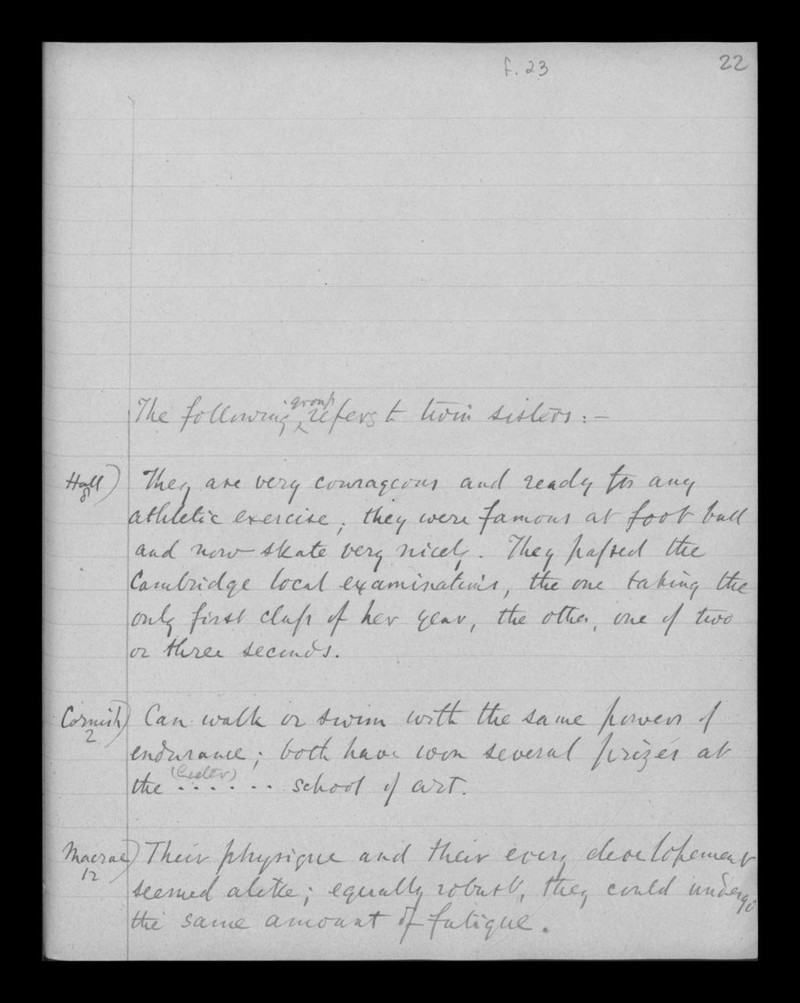 f. 23
22
The following group refers to twin sisters :—
Hall)
8
They are very courageous and ready for any
athletic exercise; they were famous at foot ball
and now skate very nicely. They passed the
Cambridge local examinations, the one taking the
only first class of her year, the other, one of two
or three seconds.
Cornish)
2
Can walk or swim with the same powers of
endurance; both have won several prizes at
the ...... school of art.
Macrae)
12
Their physique and their every developement
seemed alike; equally robust, they could undergo
the same amount of fatigue.